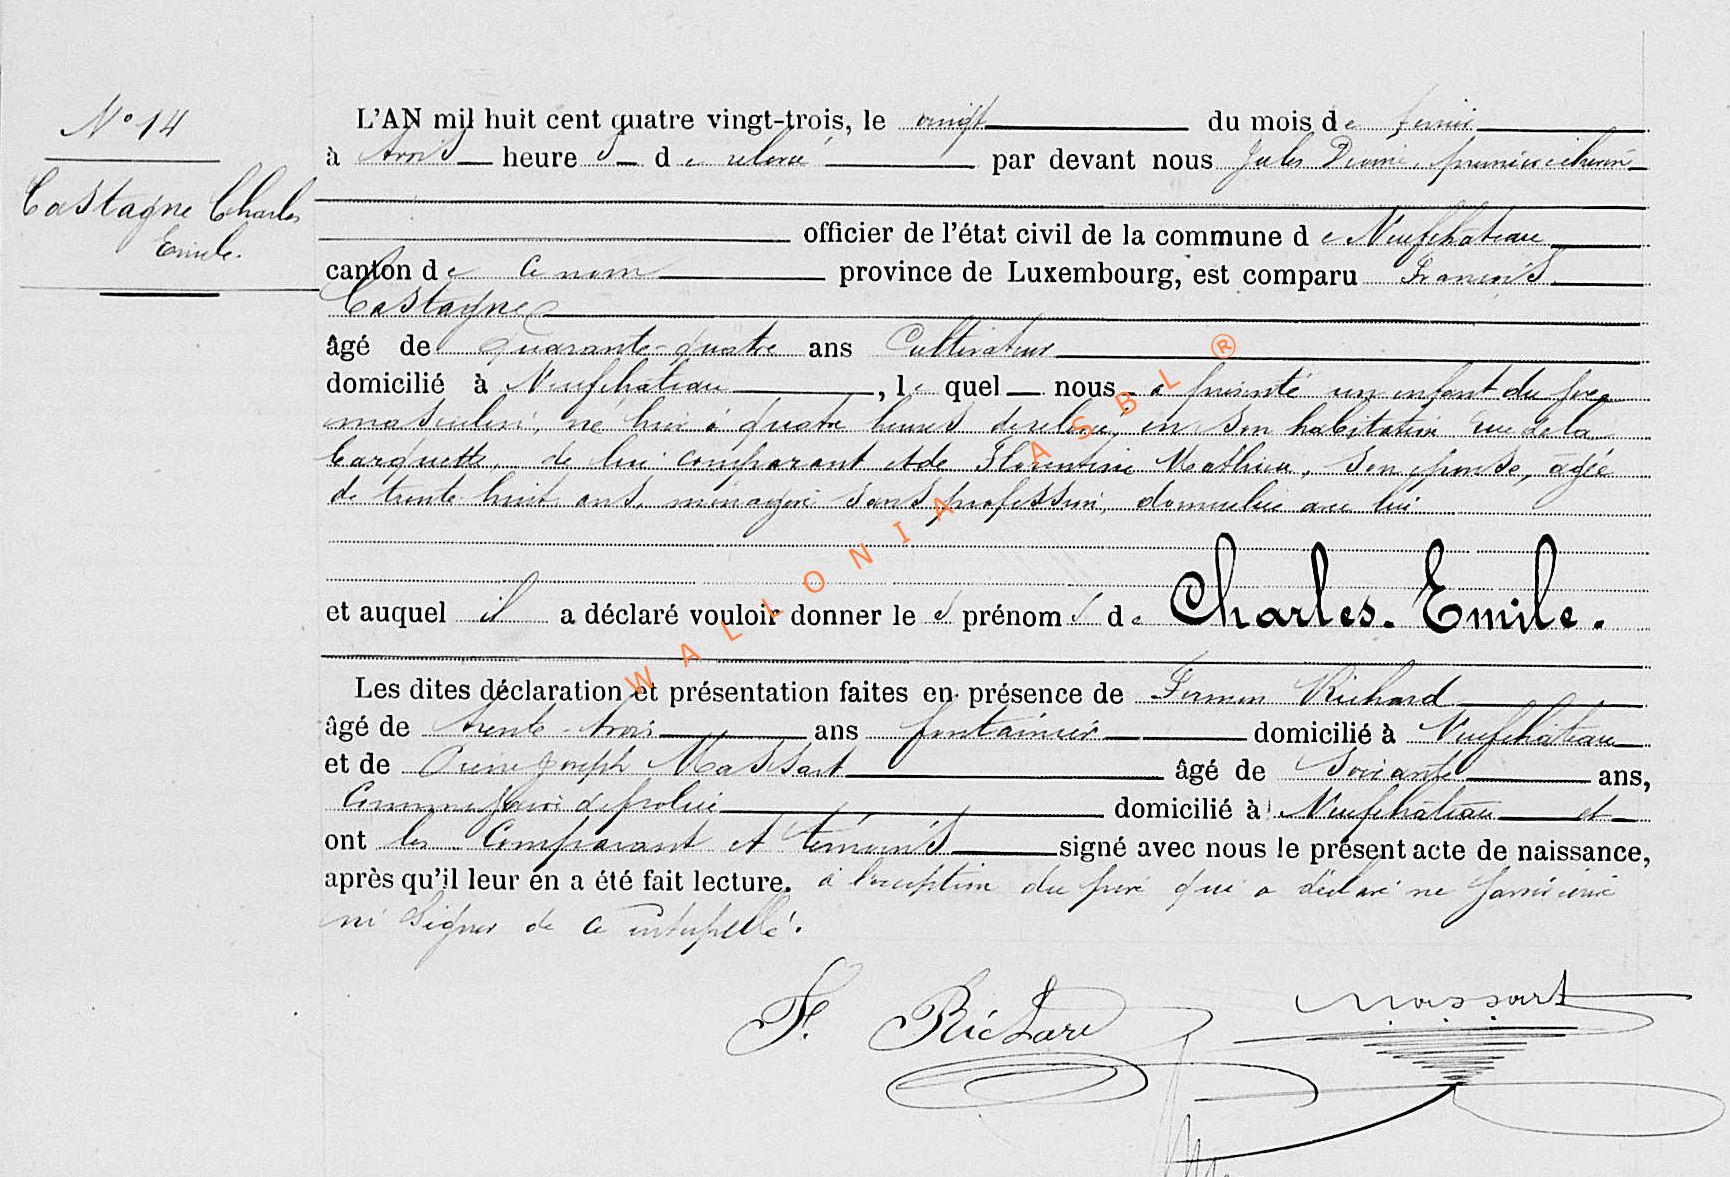 N° 14
Castagne Charles
Emile.
L'AN mil huit cent quatre vingt-trois, le vingt du mois de février
à trois heures de relevée par devant nous Jules premier échevin
officier de l'état civil de la commune de Neufchâteau
canton de ce nom province de Luxembourg, est comparu François
Castagne
âgé de quarante-quatre ans Cultivateur
domicilié à Neufchâteau, lequel nous a présenté un enfant du sexe
masculin, né hier à quatre heures de relevée, en son habitation rue de la
de lui comparant et de Florentine Mathieu, son épouse, âgée
de trente huit ans, ménagère sans profession, domiciliée avec lui
et auquel il a déclaré vouloir donner les prénoms de Charles. Emile.
Les dites déclaration et présentation faites en présence de Firmin Richard
âgé de trente-trois ans fontainier domicilié à Neufchâteau
et de Pierre Joseph Massart âgé de soixante ans,
Commissaire de police domicilié à Neufchâteau et
ont les Comparant et témoins signé avec nous le présent acte de naissance,
après qu'il leur en a été fait lecture. à l'exception du père qui a déclaré ne savoir écrire
ni signer de ce interpellé.
F. Richard
Massart
WALLONIA ASBL ®